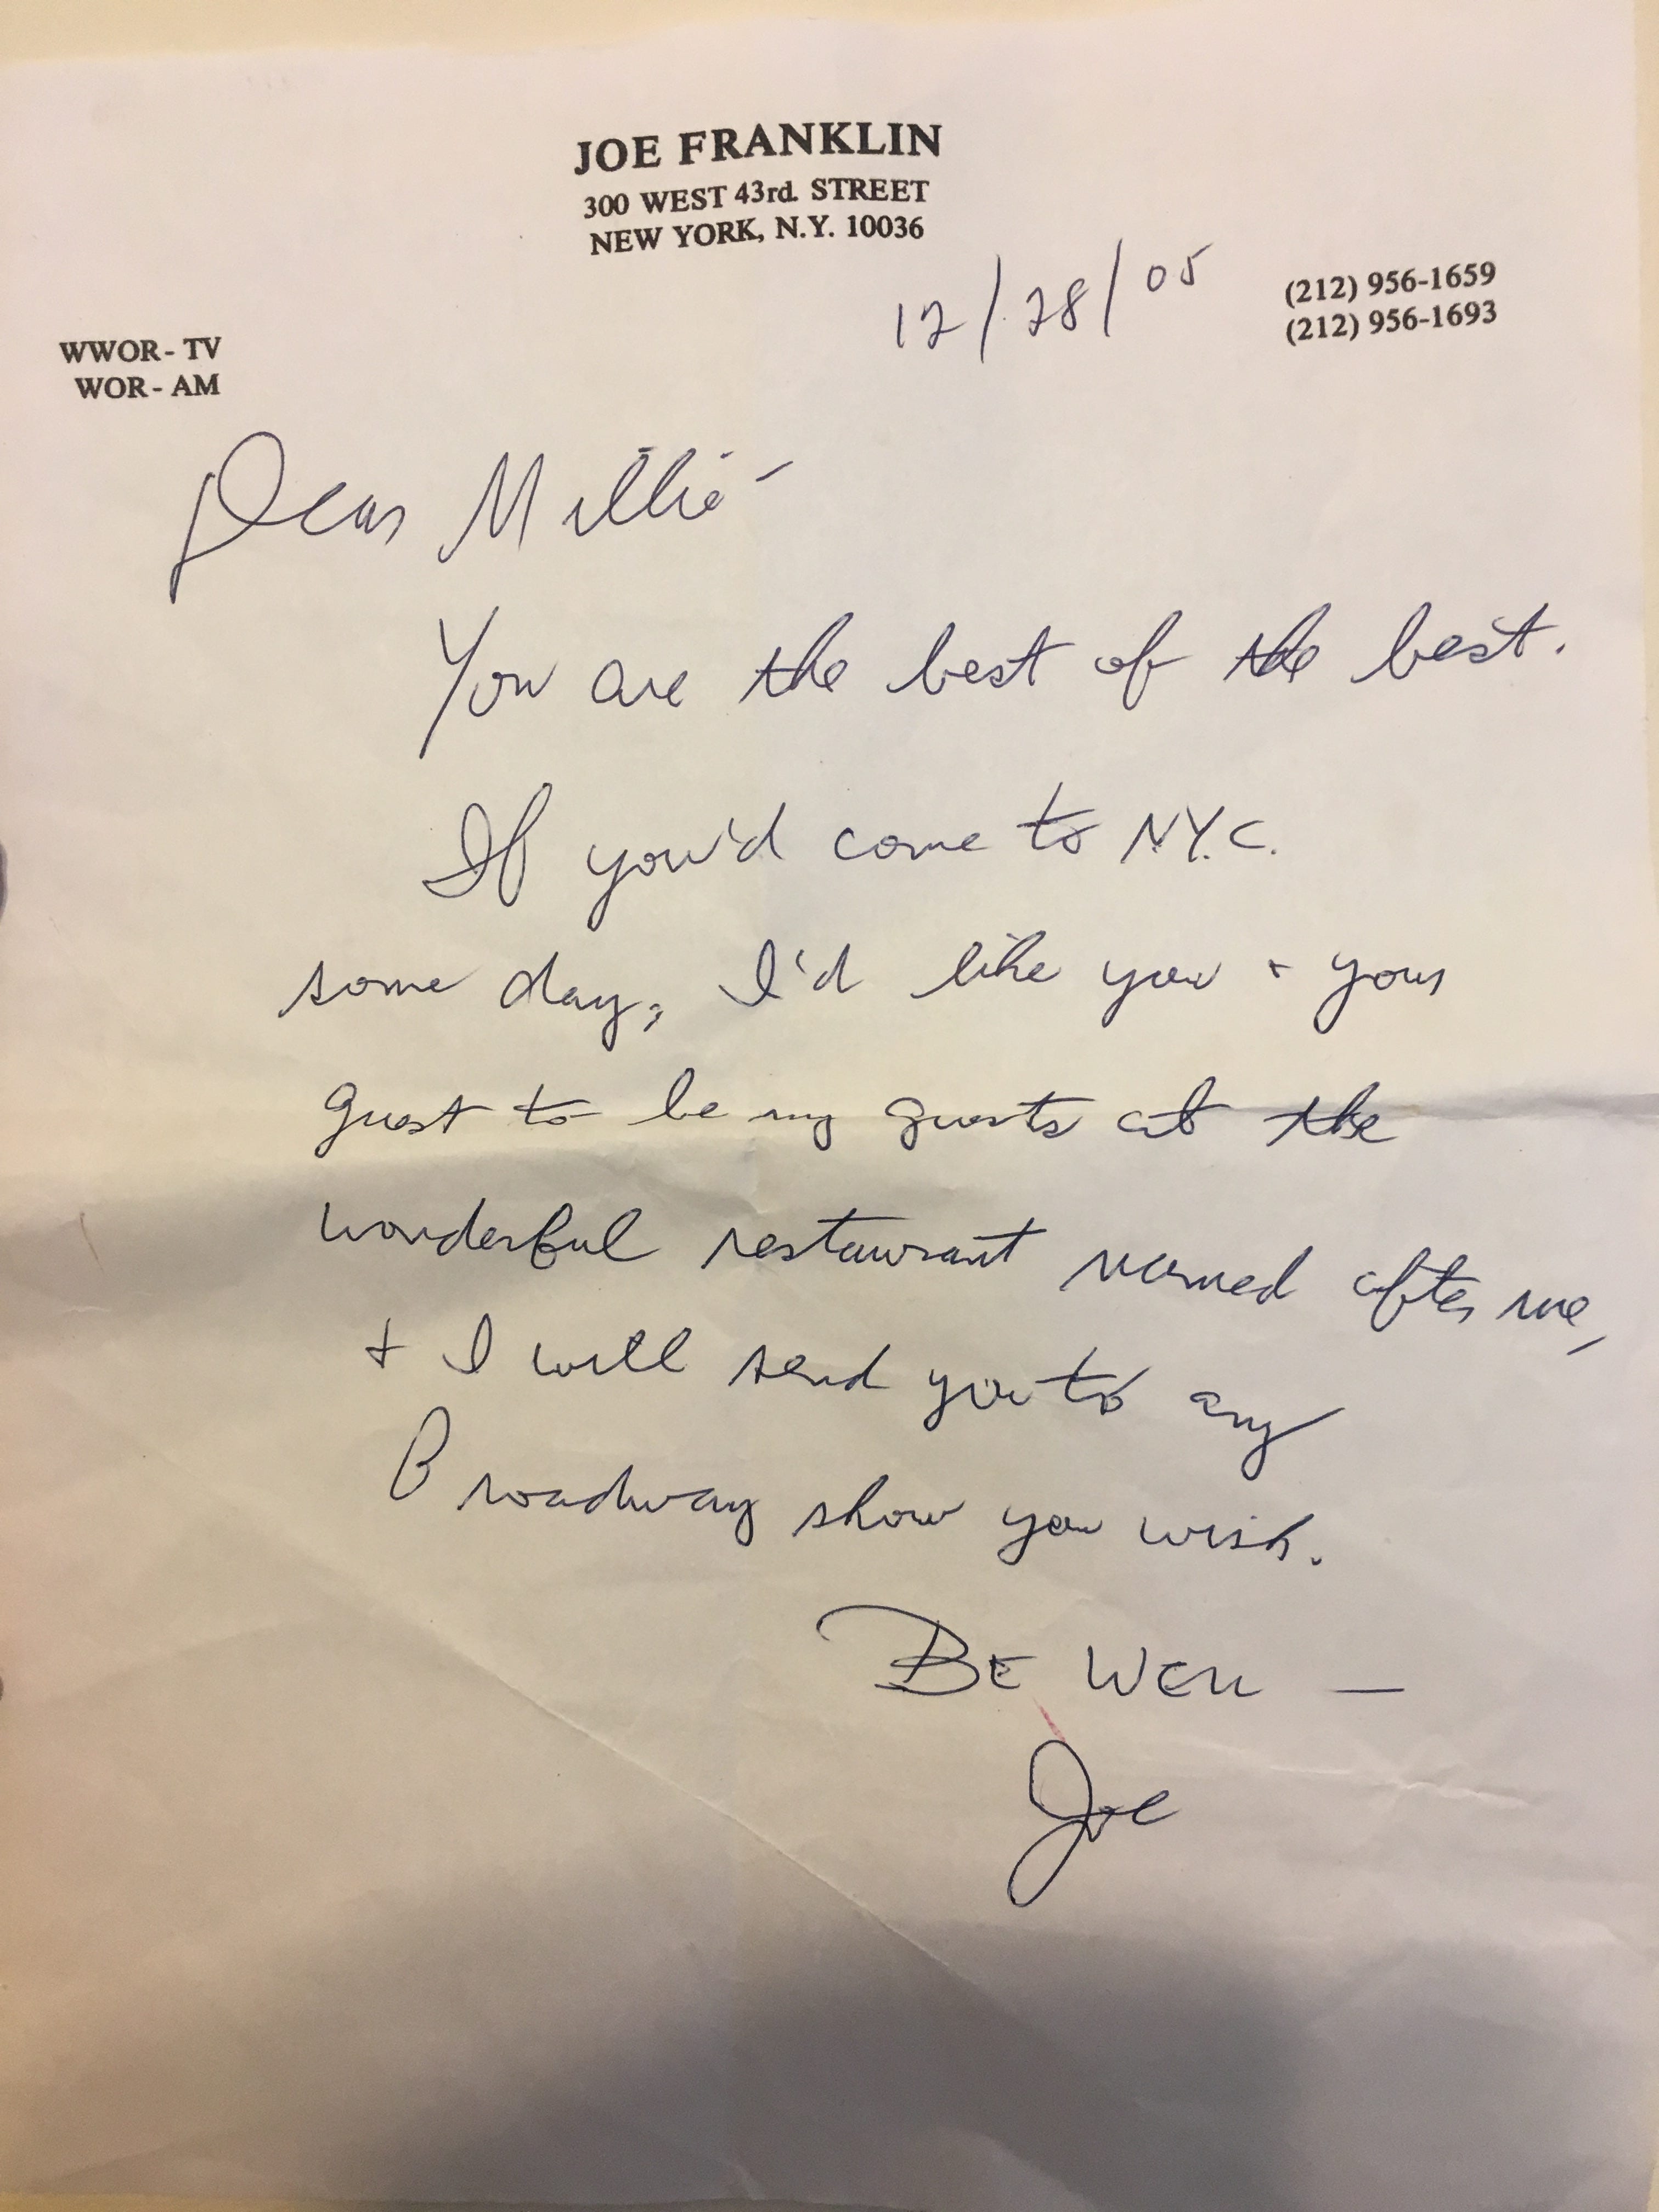 JOE FRANKLIN
300 WEST 43rd. STREET
NEW YORK, N.Y. 10036
12/28/05
(212) 956-1659
(212) 956-1693
WWOR - TV
WOR - AM
Dear Millie -
You are the best of the best.
If you'd come to N.Y.C.
some day, I'd like you + your
guest to be my guests at the
wonderful restaurant named after me,
+ I will send you to any
Broadway show you wish.
BE WELL —
Joe